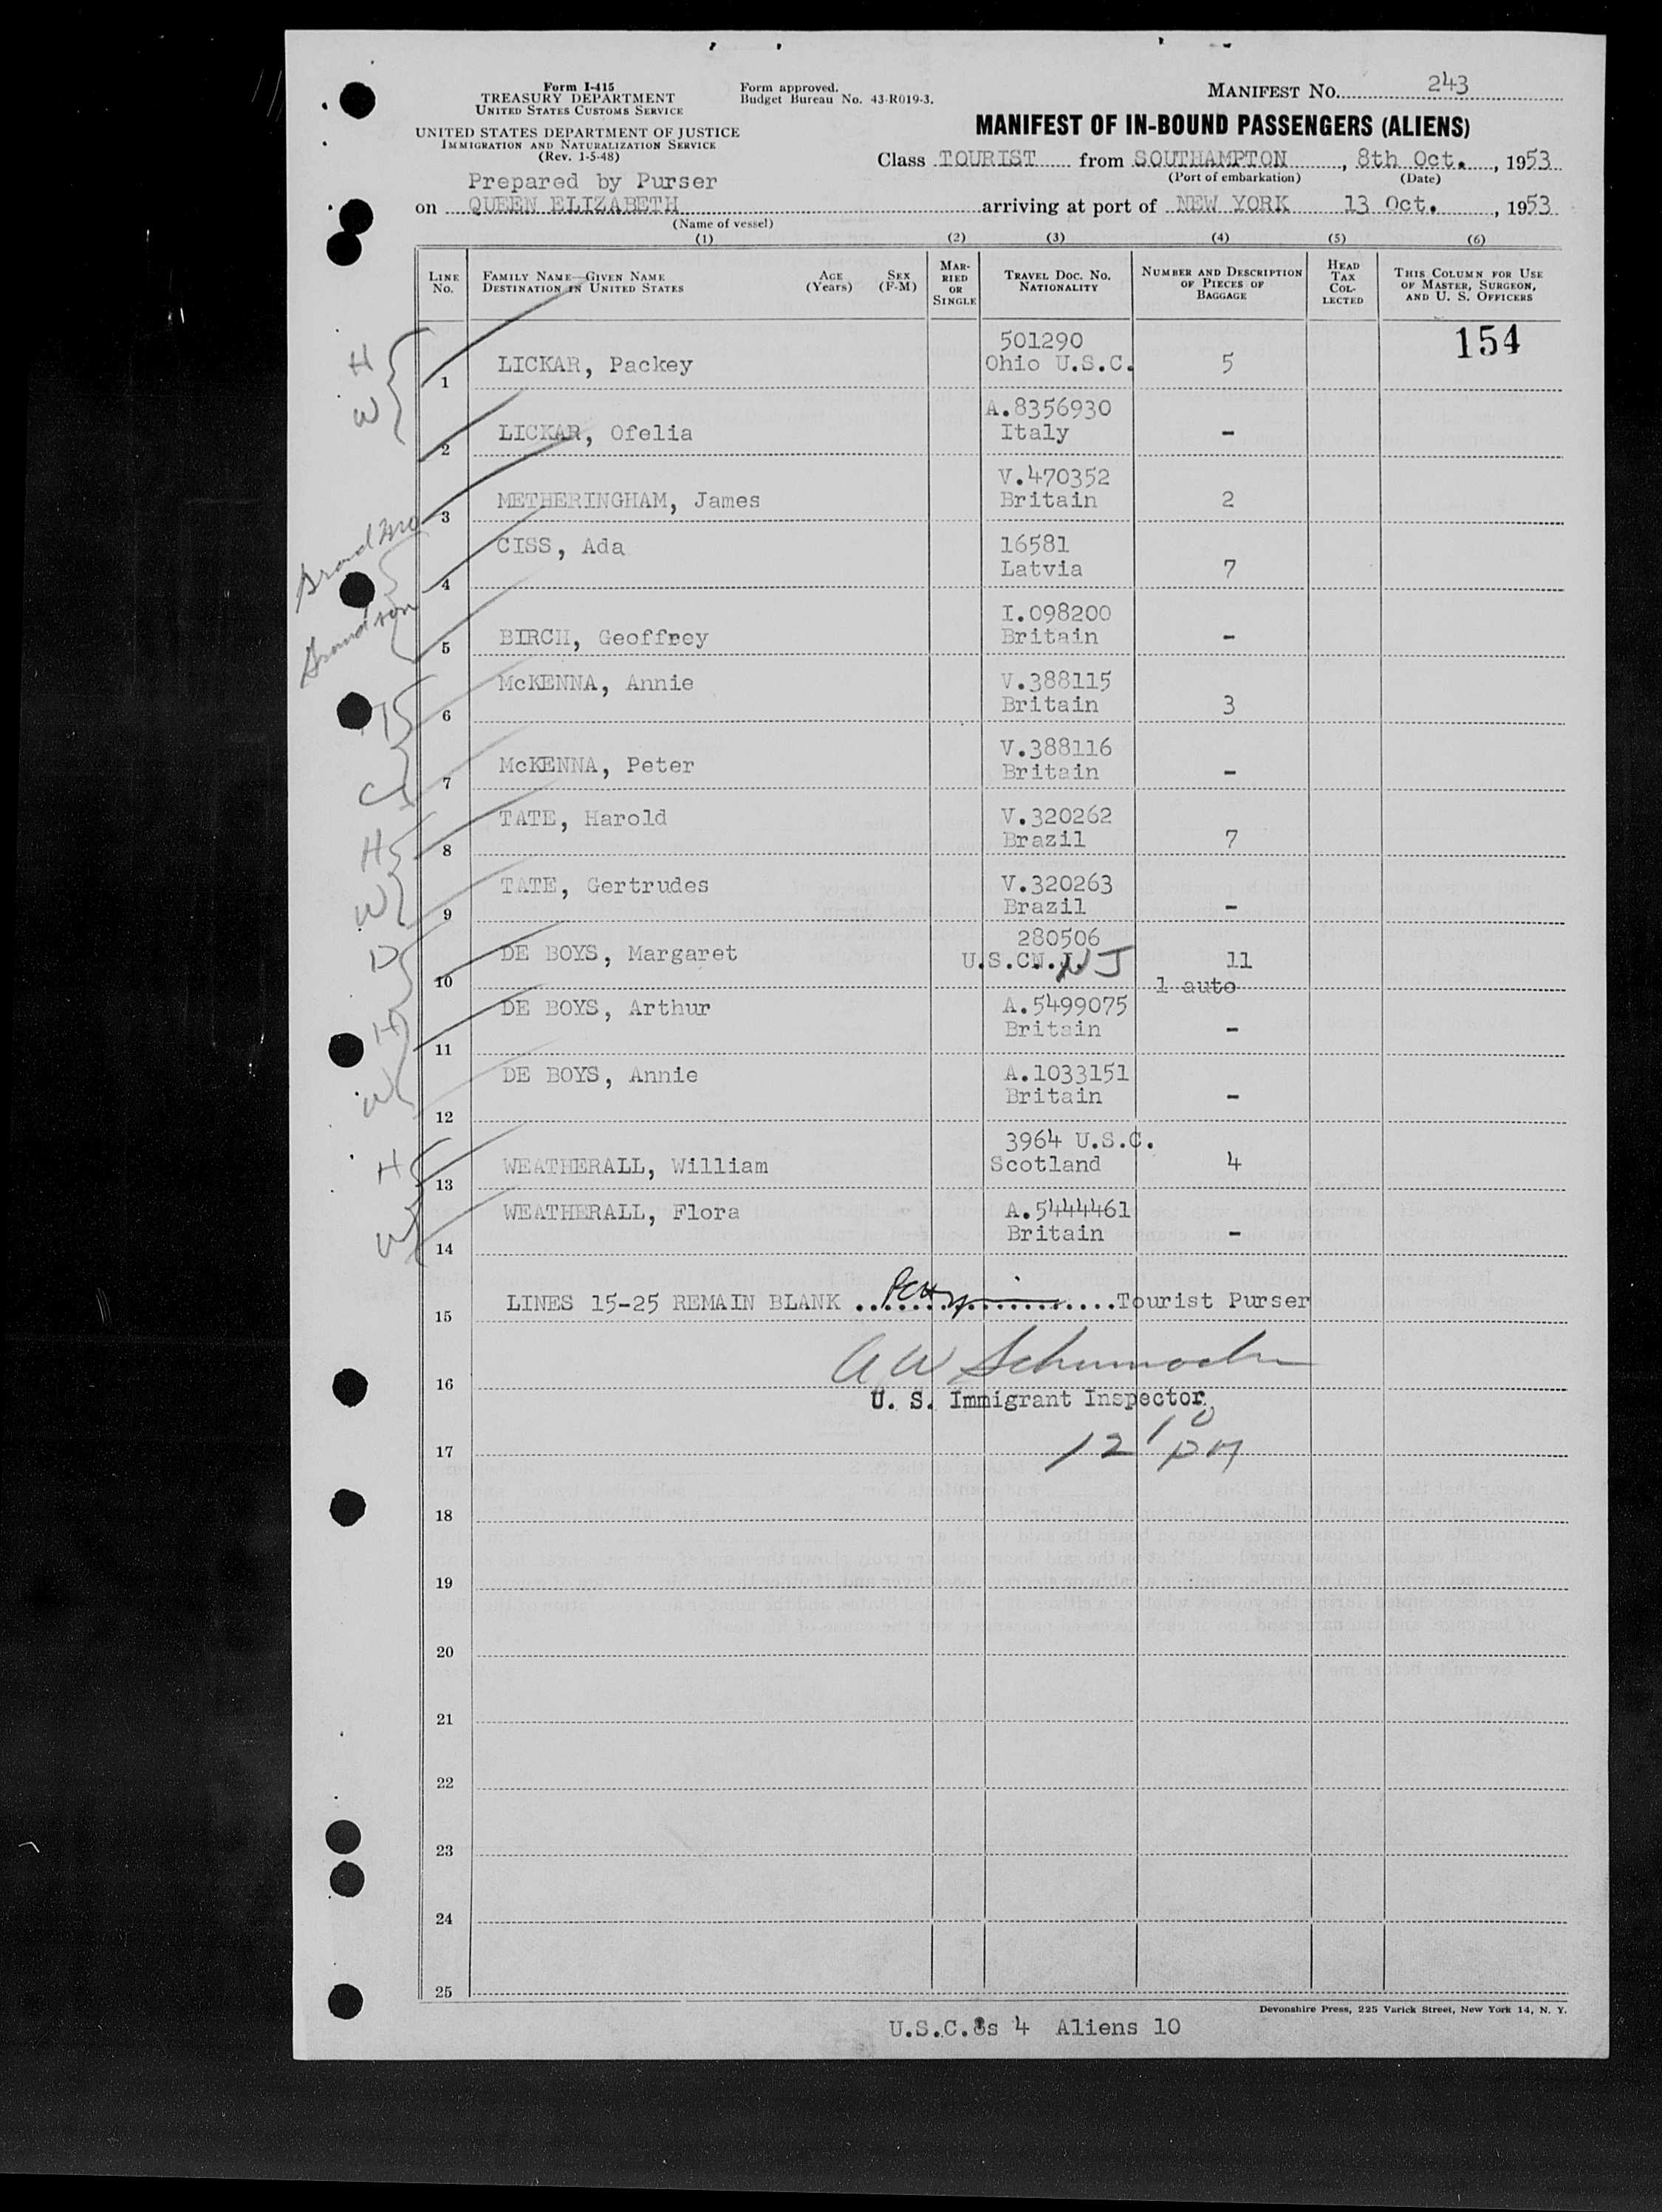 Form I-415
TREASURY DEPARTMENT
UNITED STATES CUSTOMS SERVICE
UNITED STATES DEPARTMENT OF JUSTICE
IMMIGRATION AND NATURALIZATION SERVICE
(Rev. 1-5-48)
Form approved.
Budget Bureau No. 43-R019-3.
MANIFEST NO. 243
MANIFEST OF IN-BOUND PASSENGERS (ALIENS)
Class TOURIST from SOUTHAMPTON, 8th Oct., 1953
(Port of embarkation) (Date)
Prepared by Purser
on QUEEN ELIZABETH arriving at port of NEW YORK 13 Oct., 1953
(Name of vessel)
(1) (2) (3) (4) (5) (6)
LINE No. FAMILY NAME—GIVEN NAME DESTINATION IN UNITED STATES AGE (Years) SEX (F-M) MARRIED OR SINGLE TRAVEL DOC. NO. NATIONALITY NUMBER AND DESCRIPTION OF PIECES OF BAGGAGE HEAD TAX COLLECTED THIS COLUMN FOR USE OF MASTER, SURGEON, AND U. S. OFFICERS
154
H
501290
1 LICKAR, Packey Ohio U.S.C. 5
W
A.8356930
2 LICKAR, Ofelia Italy -
V.470352
3 METHERINGHAM, James Britain 2
CISS, Ada 16581
4 Latvia 7
Grandson
I.098200
5 BIRCH, Geoffrey Britain -
McKENNA, Annie V.388115
6 Britain 3
V.388116
7 McKENNA, Peter Britain -
C
TATE, Harold V.320262
H
8 Brazil 7
TATE, Gertrudes V.320263
W
9 Brazil -
280506
D
DE BOYS, Margaret U.S.CN.J. NJ 11
10 1 auto
DE BOYS, Arthur A.5499075
H
Britain -
11
DE BOYS, Annie A.1033151
W
Britain -
12
3964 U.S.C.
H
WEATHERALL, William Scotland 4
13
WEATHERALL, Flora A.5444461
W
Britain -
14
LINES 15-25 REMAIN BLANK ....................Tourist Purser
15
A W Schumacher
16
U. S. Immigrant Inspector
12 10 PM
17
18
19
20
21
22
23
24
25
Devonshire Press, 225 Varick Street, New York 14, N. Y.
U.S.C.8s 4 Aliens 10